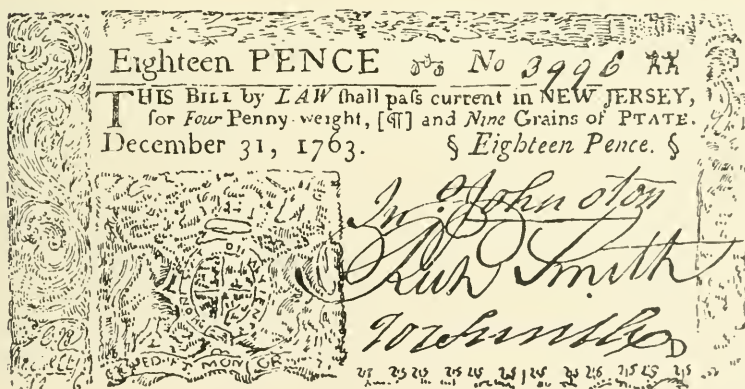 Eighteen PENCE No
THIS BILL by LAW ſhall paſs current in NEW JERSEY,
for Four Penny-weight, [¶] and Nine Grains of PTATE.
December 31, 1763. § Eighteen Pence. §
Jn.º Johnston
Rich Smith
MON